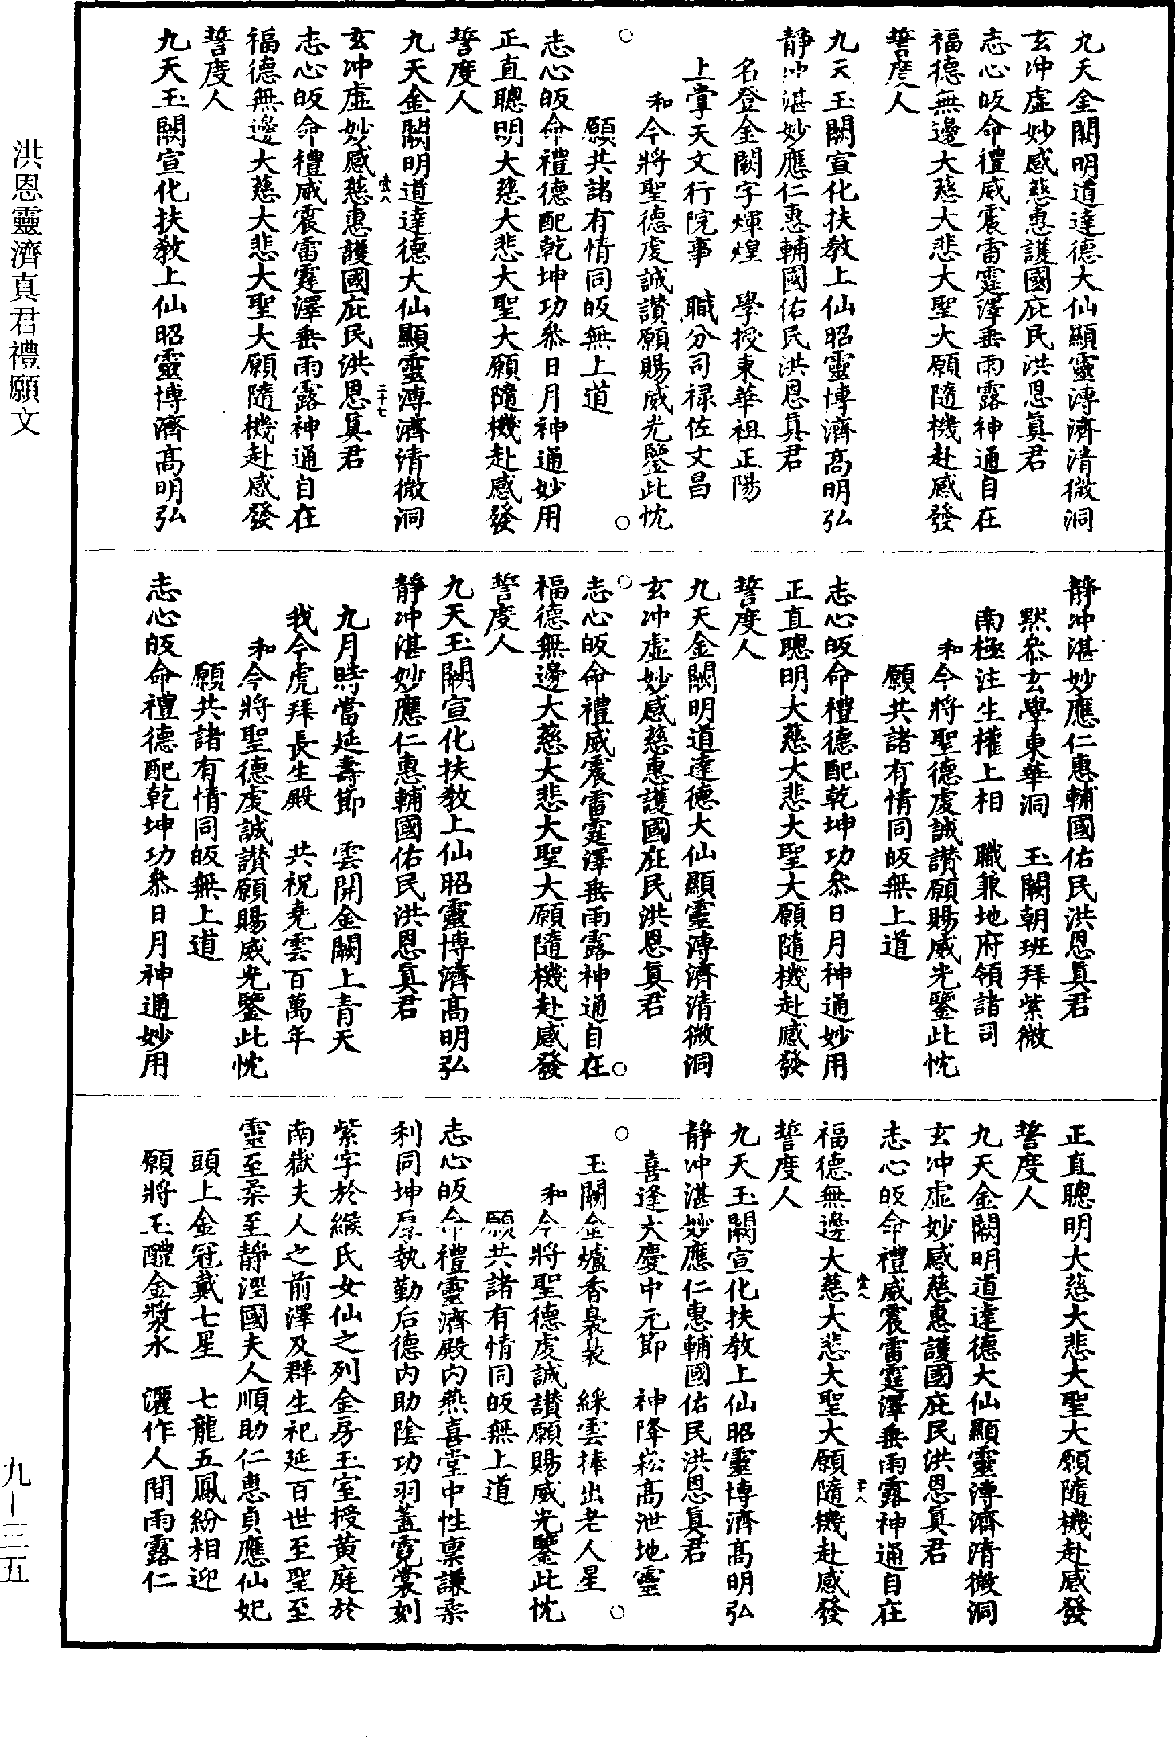 九天金闕明道達德大仙顯靈溥濟清微洞
玄冲虛妙感慈惠護國庇民洪恩真君
志心皈命禮威震雷霆澤垂雨露神通自在
福德無邊大慈大悲大聖大願隨機赴感發
誓度人
九天玉闕宣化扶教上仙昭靈博濟高明弘
靜冲湛妙應仁惠輔國佑民洪恩真君
名登金闕字煇煌　學授東華祖正陽
上掌天文行院事　職分司祿佐文昌
和今將聖德虔誠讚願賜威光鑒此忱
願共諸有情同皈無上道
○　○
志心皈命禮德配乾坤功叅日月神通妙用
正直聰明大慈大悲大聖大願隨機赴感發
誓度人
九天金闕明道達德大仙顯靈溥濟清微洞
玄冲虛妙感慈惠護國庇民洪恩真君
志心皈命禮威震雷霆澤垂雨露神通自在
福德無邊大慈大悲大聖大願隨機赴感發
誓度人
九天玉闕宣化扶教上仙昭靈博濟高明弘
靜冲湛妙應仁惠輔國佑民洪恩真君
默叅玄學東華洞　玉闕朝班拜紫微
南極注生權上相　職兼地府領諸司
和今將聖德虔誠讚願賜威光鑒此忱
願共諸有情同皈無上道
志心皈命禮德配乾坤功叅日月神通妙用
正直聰明大慈大悲大聖大願隨機赴感發
誓度人
九天金闕明道達德大仙顯靈溥濟清微洞
玄冲虛妙感慈惠護國庇民洪恩真君
○　○
志心皈命禮威震雷霆澤垂雨露神通自在
福德無邊大慈大悲大聖大願隨機赴感發
誓度人
九天玉闕宣化扶教上仙昭靈博濟高明弘
靜冲湛妙應仁惠輔國佑民洪恩真君
九月時當延壽節　雲開金闕上青天
我今虎拜長生殿　共祝堯雲百萬年
和今將聖德虔誠讚願賜威光鑒此忱
願共諸有情同皈無上道
志心皈命禮德配乾坤功叅日月神通妙用
正直聰明大慈大悲大聖大願隨機赴感發
誓度人
九天金闕明道達德大仙顯靈溥濟清微洞
玄冲虛妙感慈惠護國庇民洪恩真君
志心皈命禮威震雷霆澤垂雨露神通自在
福德無邊大慈大悲大聖大願隨機赴感發
誓度人
九天玉闕宣化扶教上仙昭靈博濟高明弘
靜冲湛妙應仁惠輔國佑民洪恩真君
喜逢大慶中元節　神降崧高泄地靈
○　○
玉闕金爐香裊裊　綵雲捧出老人星
和今將聖德虔誠讚願賜威光鑒此忱
願共諸有情同皈無上道
志心皈命禮靈濟殿內燕喜堂中性稟謙柔
利同坤厚執勤后德內助陰功羽蓋霓裳刻
紫字於緱氏女仙之列金房玉室授黃庭於
南嶽夫人之前澤及群生祀延百世至聖至
靈至柔至靜淫國夫人順助仁惠貞應仙妃
頭上金冠戴七星　七龍五鳳紛相迎
願將玉醴金漿水　灑作人間雨露仁
洪恩靈濟真君禮願文
九—三五